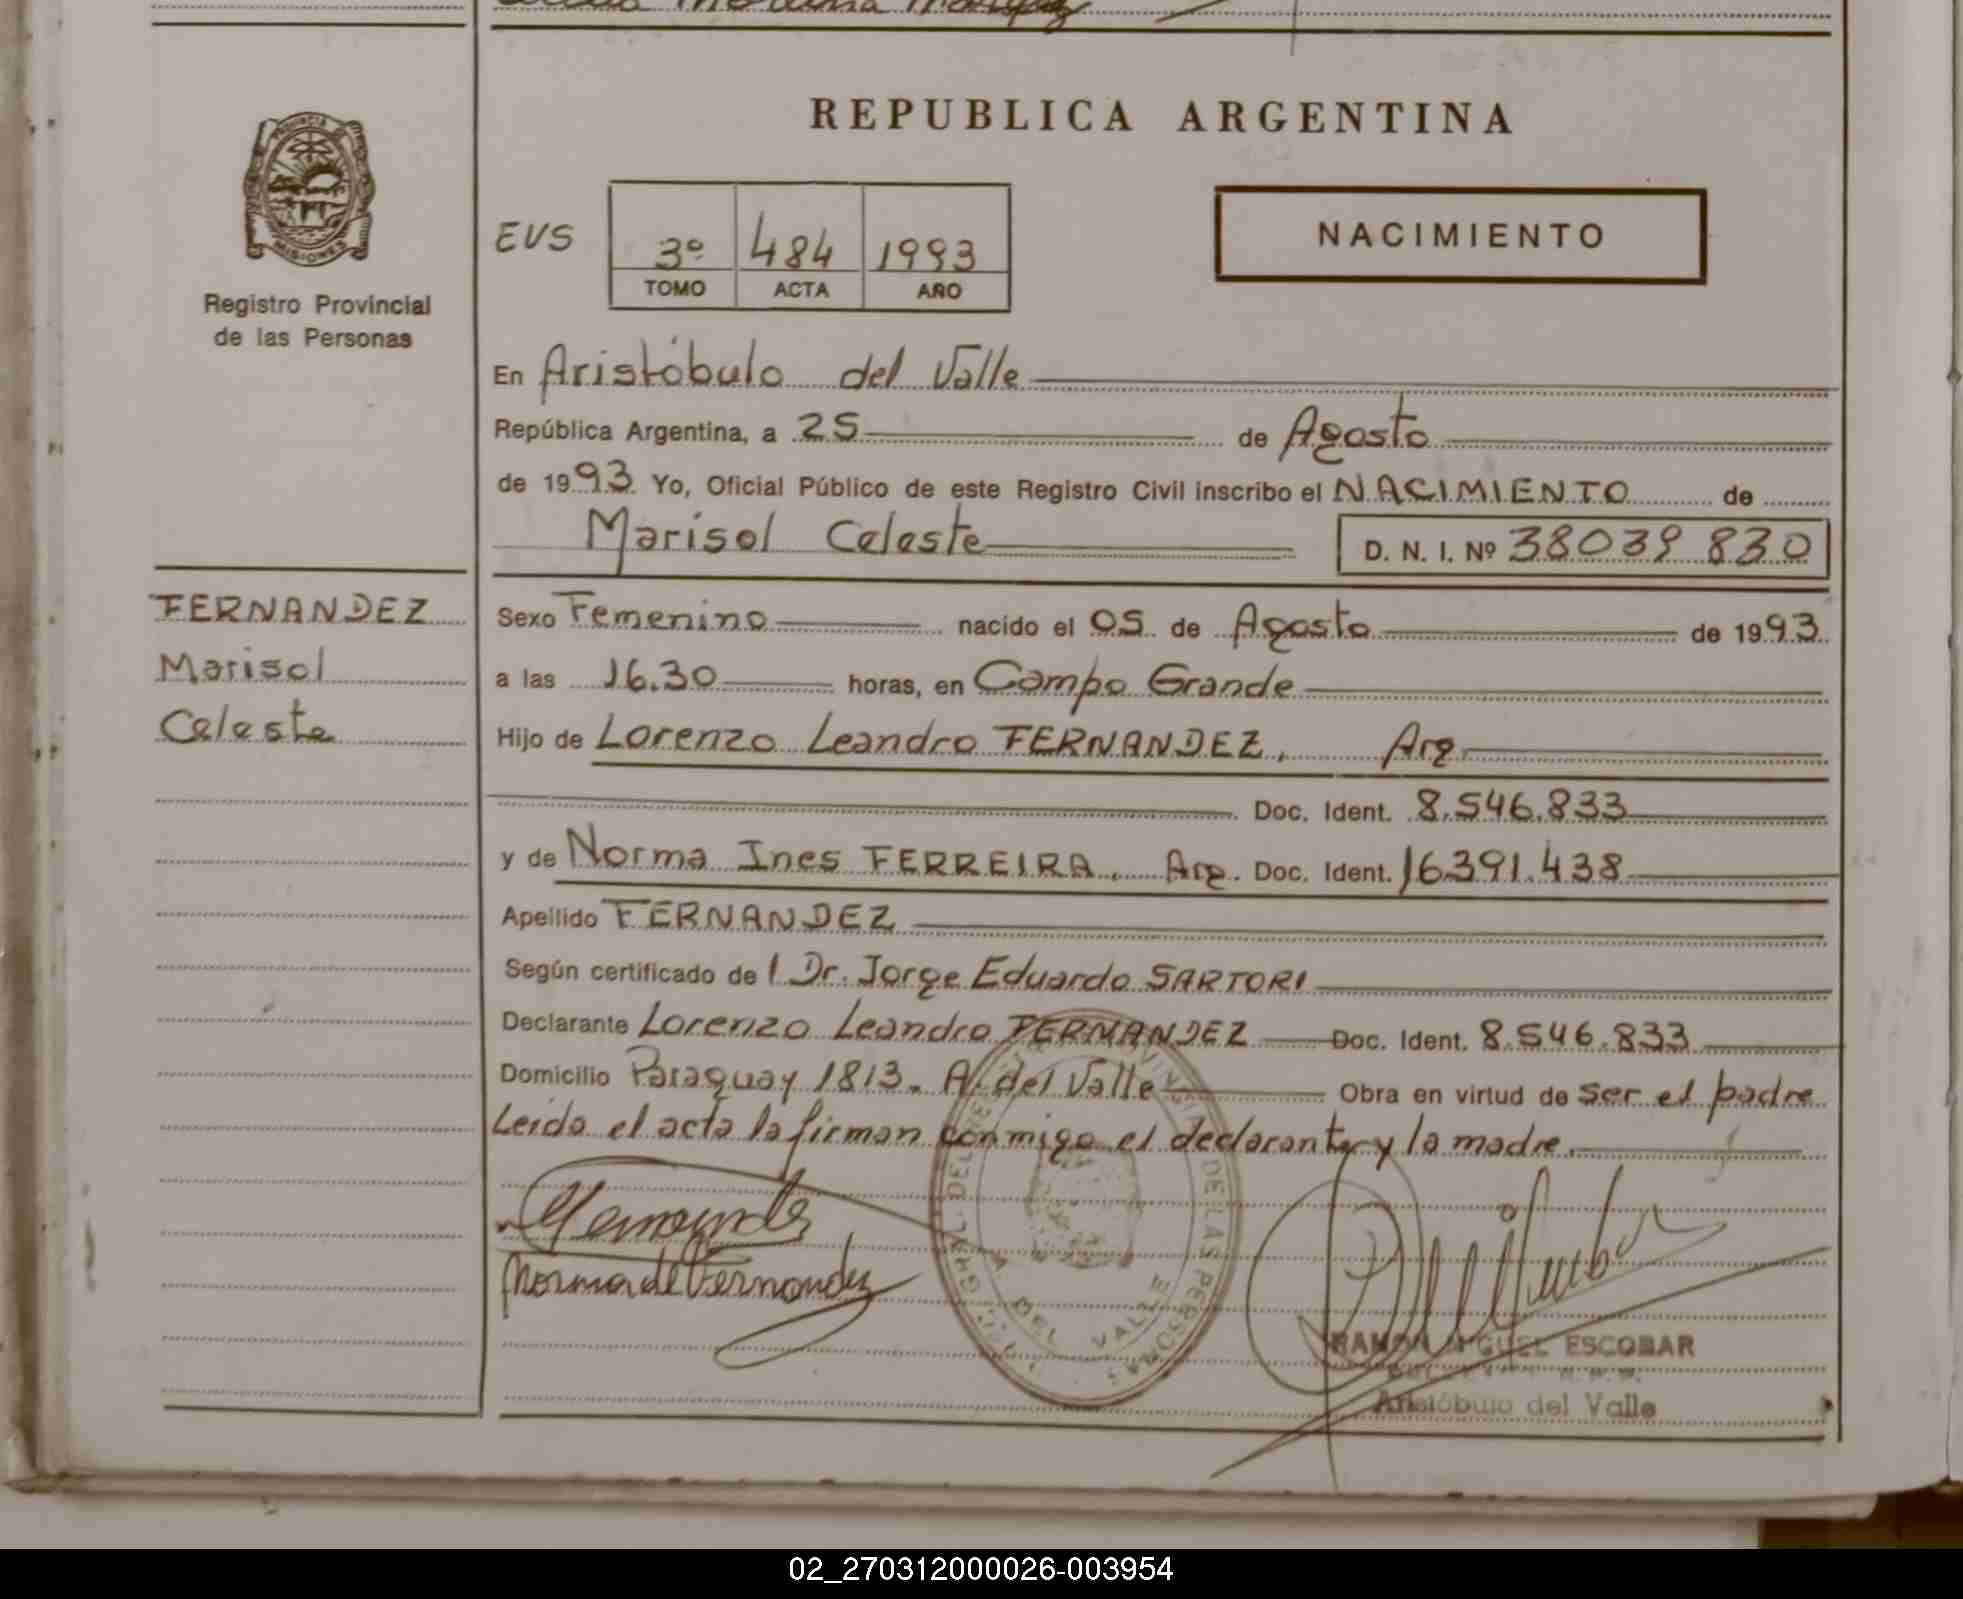 PROVINCIA DE
MISIONES
Registro Provincial
de las Personas
FERNANDEZ
Marisol
Celeste
REPUBLICA ARGENTINA
EVS 3º 484 1993
TOMO ACTA AÑO
NACIMIENTO
En Aristóbulo del Valle
República Argentina, a 25 de Agosto
de 1993 Yo, Oficial Público de este Registro Civil inscribo el NACIMIENTO de
Marisol Celeste D. N. I. Nº 38039 830
Sexo Femenino nacido el 05 de Agosto de 1993
a las 16.30 horas, en Campo Grande
Hijo de Lorenzo Leandro FERNANDEZ, Arg.
Doc. Ident. 8.546.833
y de Norma Ines FERREIRA, Arg. Doc. Ident. 16391.438
Apellido FERNANDEZ
Según certificado de l Dr. Jorge Eduardo SARTORI
Declarante Lorenzo Leandro FERNANDEZ Doc. Ident. 8.546.833
Domicilio Paraguay 1813. A. del Valle Obra en virtud de ser el padre
Leida el acta la firman conmigo el declarante y la madre.
Norma de Fernandez
DE LAS PERSONAS
A. DEL VALLE
RAMON MIGUEL ESCOBAR
Aristóbulo del Valle
02_270312000026-003954